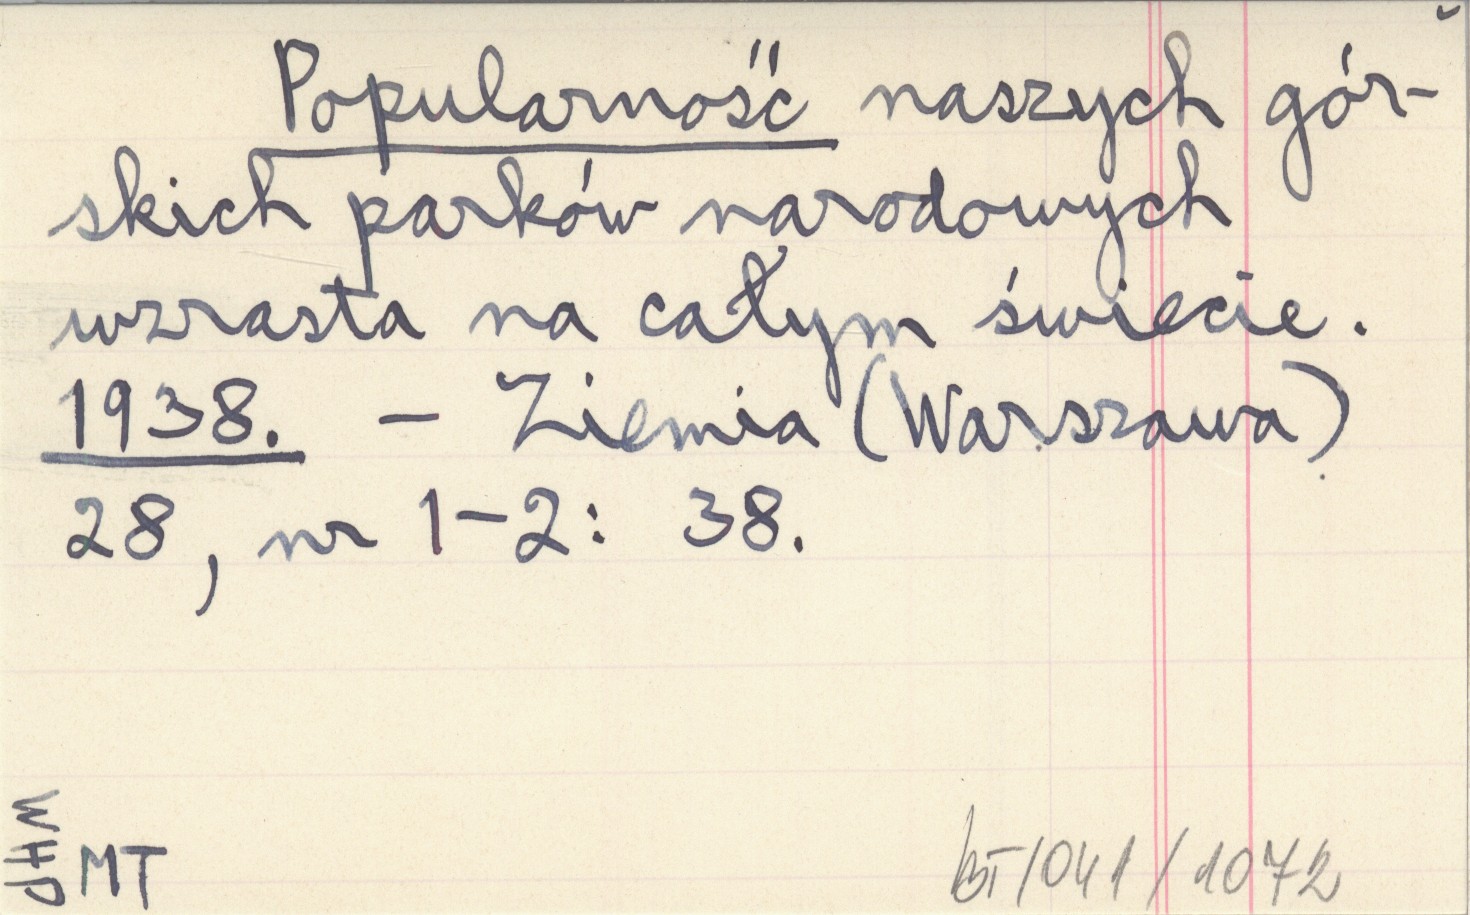 Popularność naszych gór-
skich parków narodowych
wzrasta na całym świecie.
1938. – Ziemia (Warszawa)
28, nr 1–2: 38.
JHM
MT
BT/041/1072